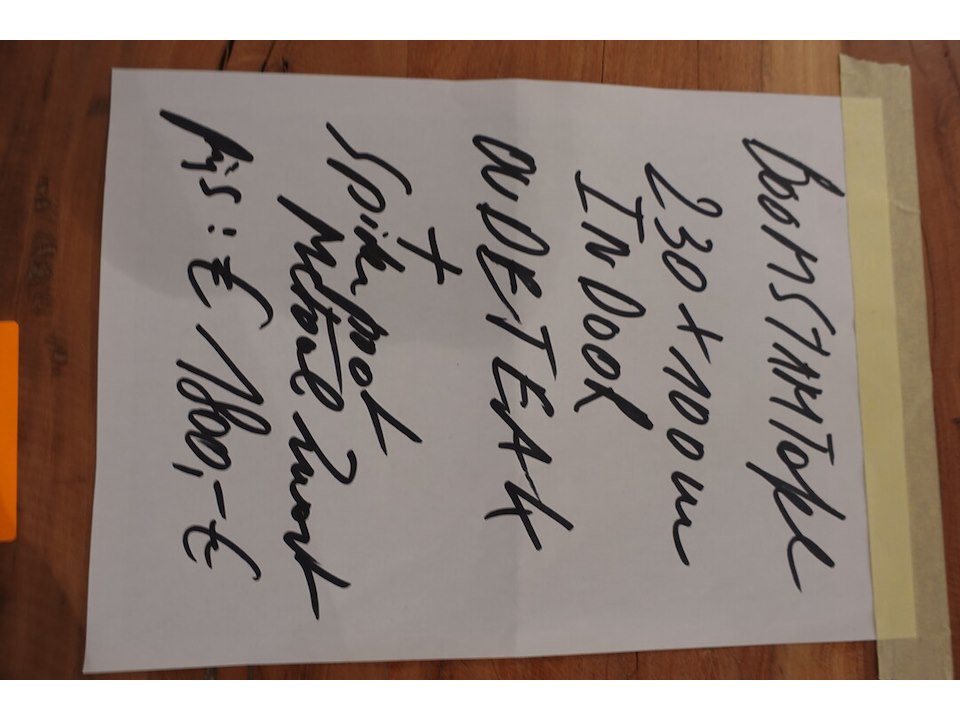 BOOMSTAMTafel
230 x 100 cm
INDOOR
OUDE TEAK
+
Spinpoot
Metaal Zwart
Prijs : € 1800,- €